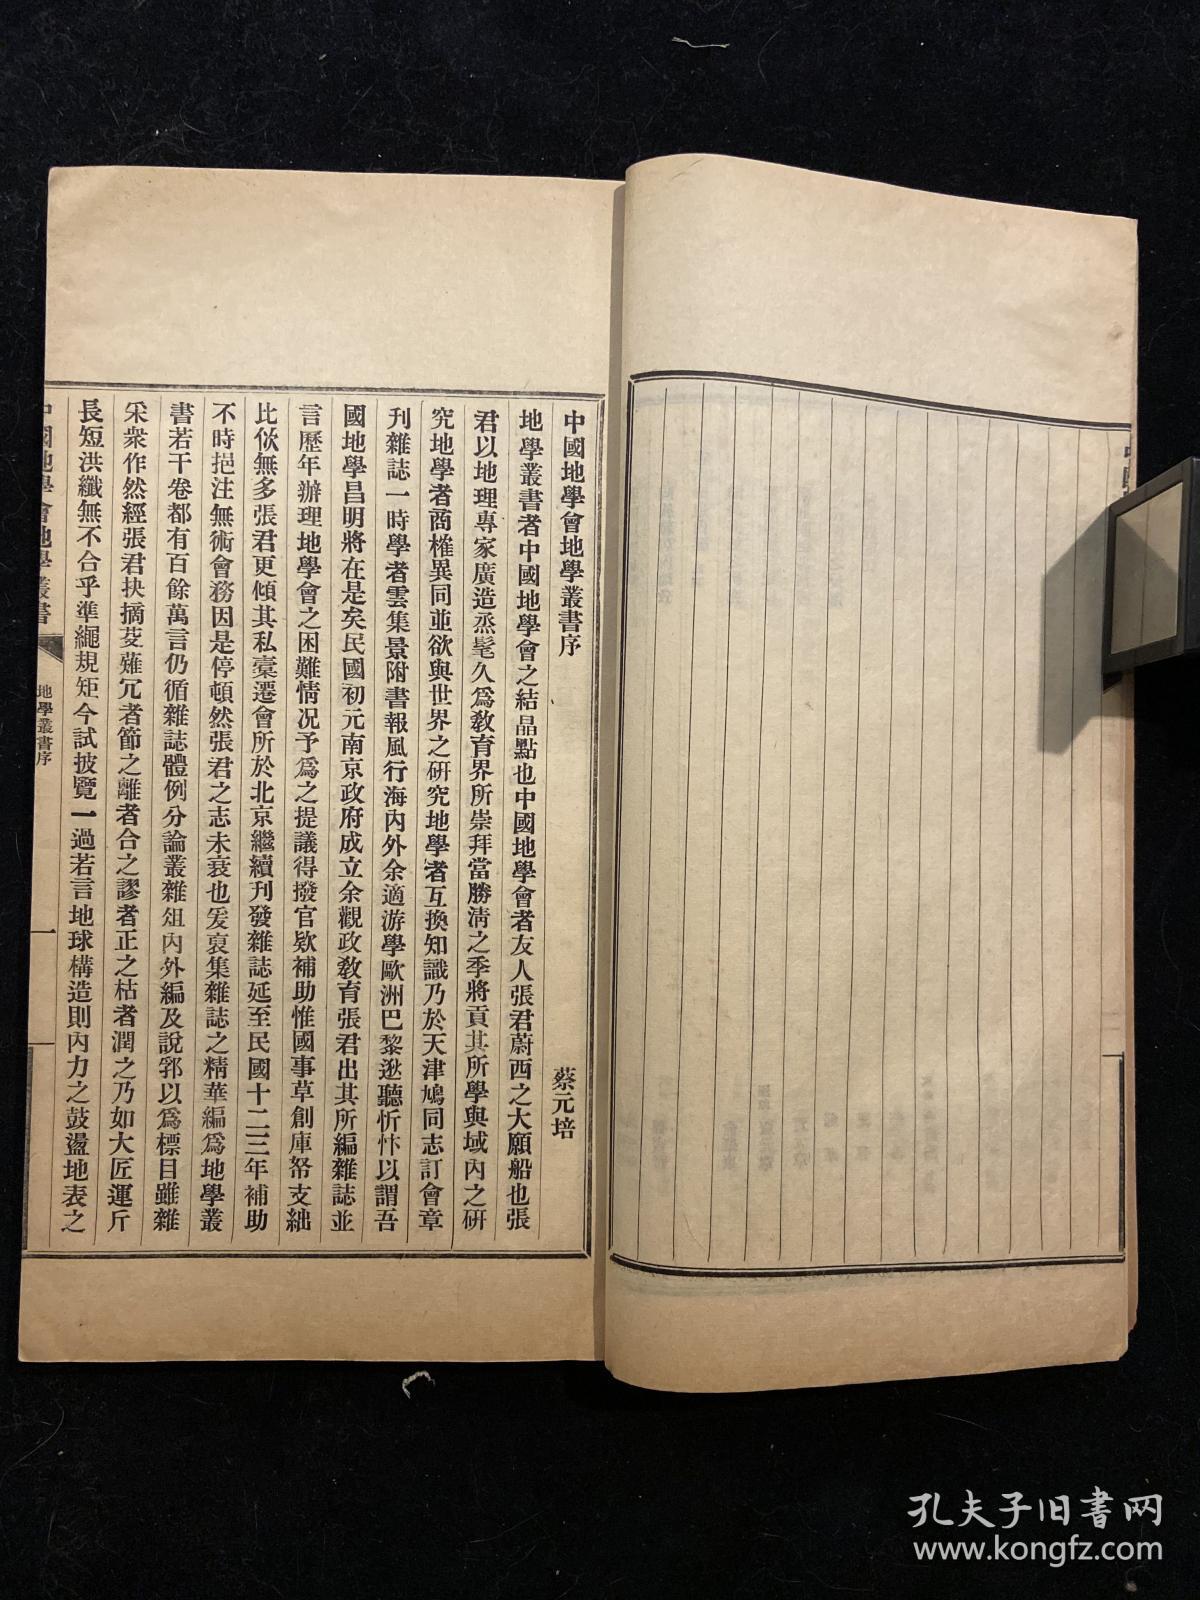 中國地學會地學叢書序
蔡元培
地學叢書者中國地學會之結晶點也中國地學會者友人張君蔚西之大願船也張
君以地理專家廣造烝髦久爲敎育界所崇拜當勝淸之季將貢其所學與域內之硏
究地學者商榷異同並欲與世界之硏究地學者互換知識乃於天津鳩同志訂會章
刊雜誌一時學者雲集景附書報風行海內外余適游學歐洲巴黎逖聽忻忭以謂吾
國地學昌明將在是矣民國初元南京政府成立余觀政敎育張君出其所編雜誌並
言歷年辦理地學會之困難情況予爲之提議得撥官欵補助惟國事草創庫帑支絀
比佽無多張君更傾其私橐遷會所於北京繼續刊發雜誌延至民國十二三年補助
不時挹注無術會務因是停頓然張君之志未衰也爰裒集雜誌之精華編爲地學叢
書若干卷都有百餘萬言仍循雜誌體例分論叢雜俎內外編及說郛以爲標目雖雜
釆衆作然經張君抉摘芟薙冗者節之離者合之謬者正之枯者潤之乃如大匠運斤
長短洪纖無不合乎準繩規矩今試披覽一過若言地球構造則內力之鼓盪地表之
中國地學會地學叢書
地學叢書序
一
孔夫子旧书网
www.kongfz.com